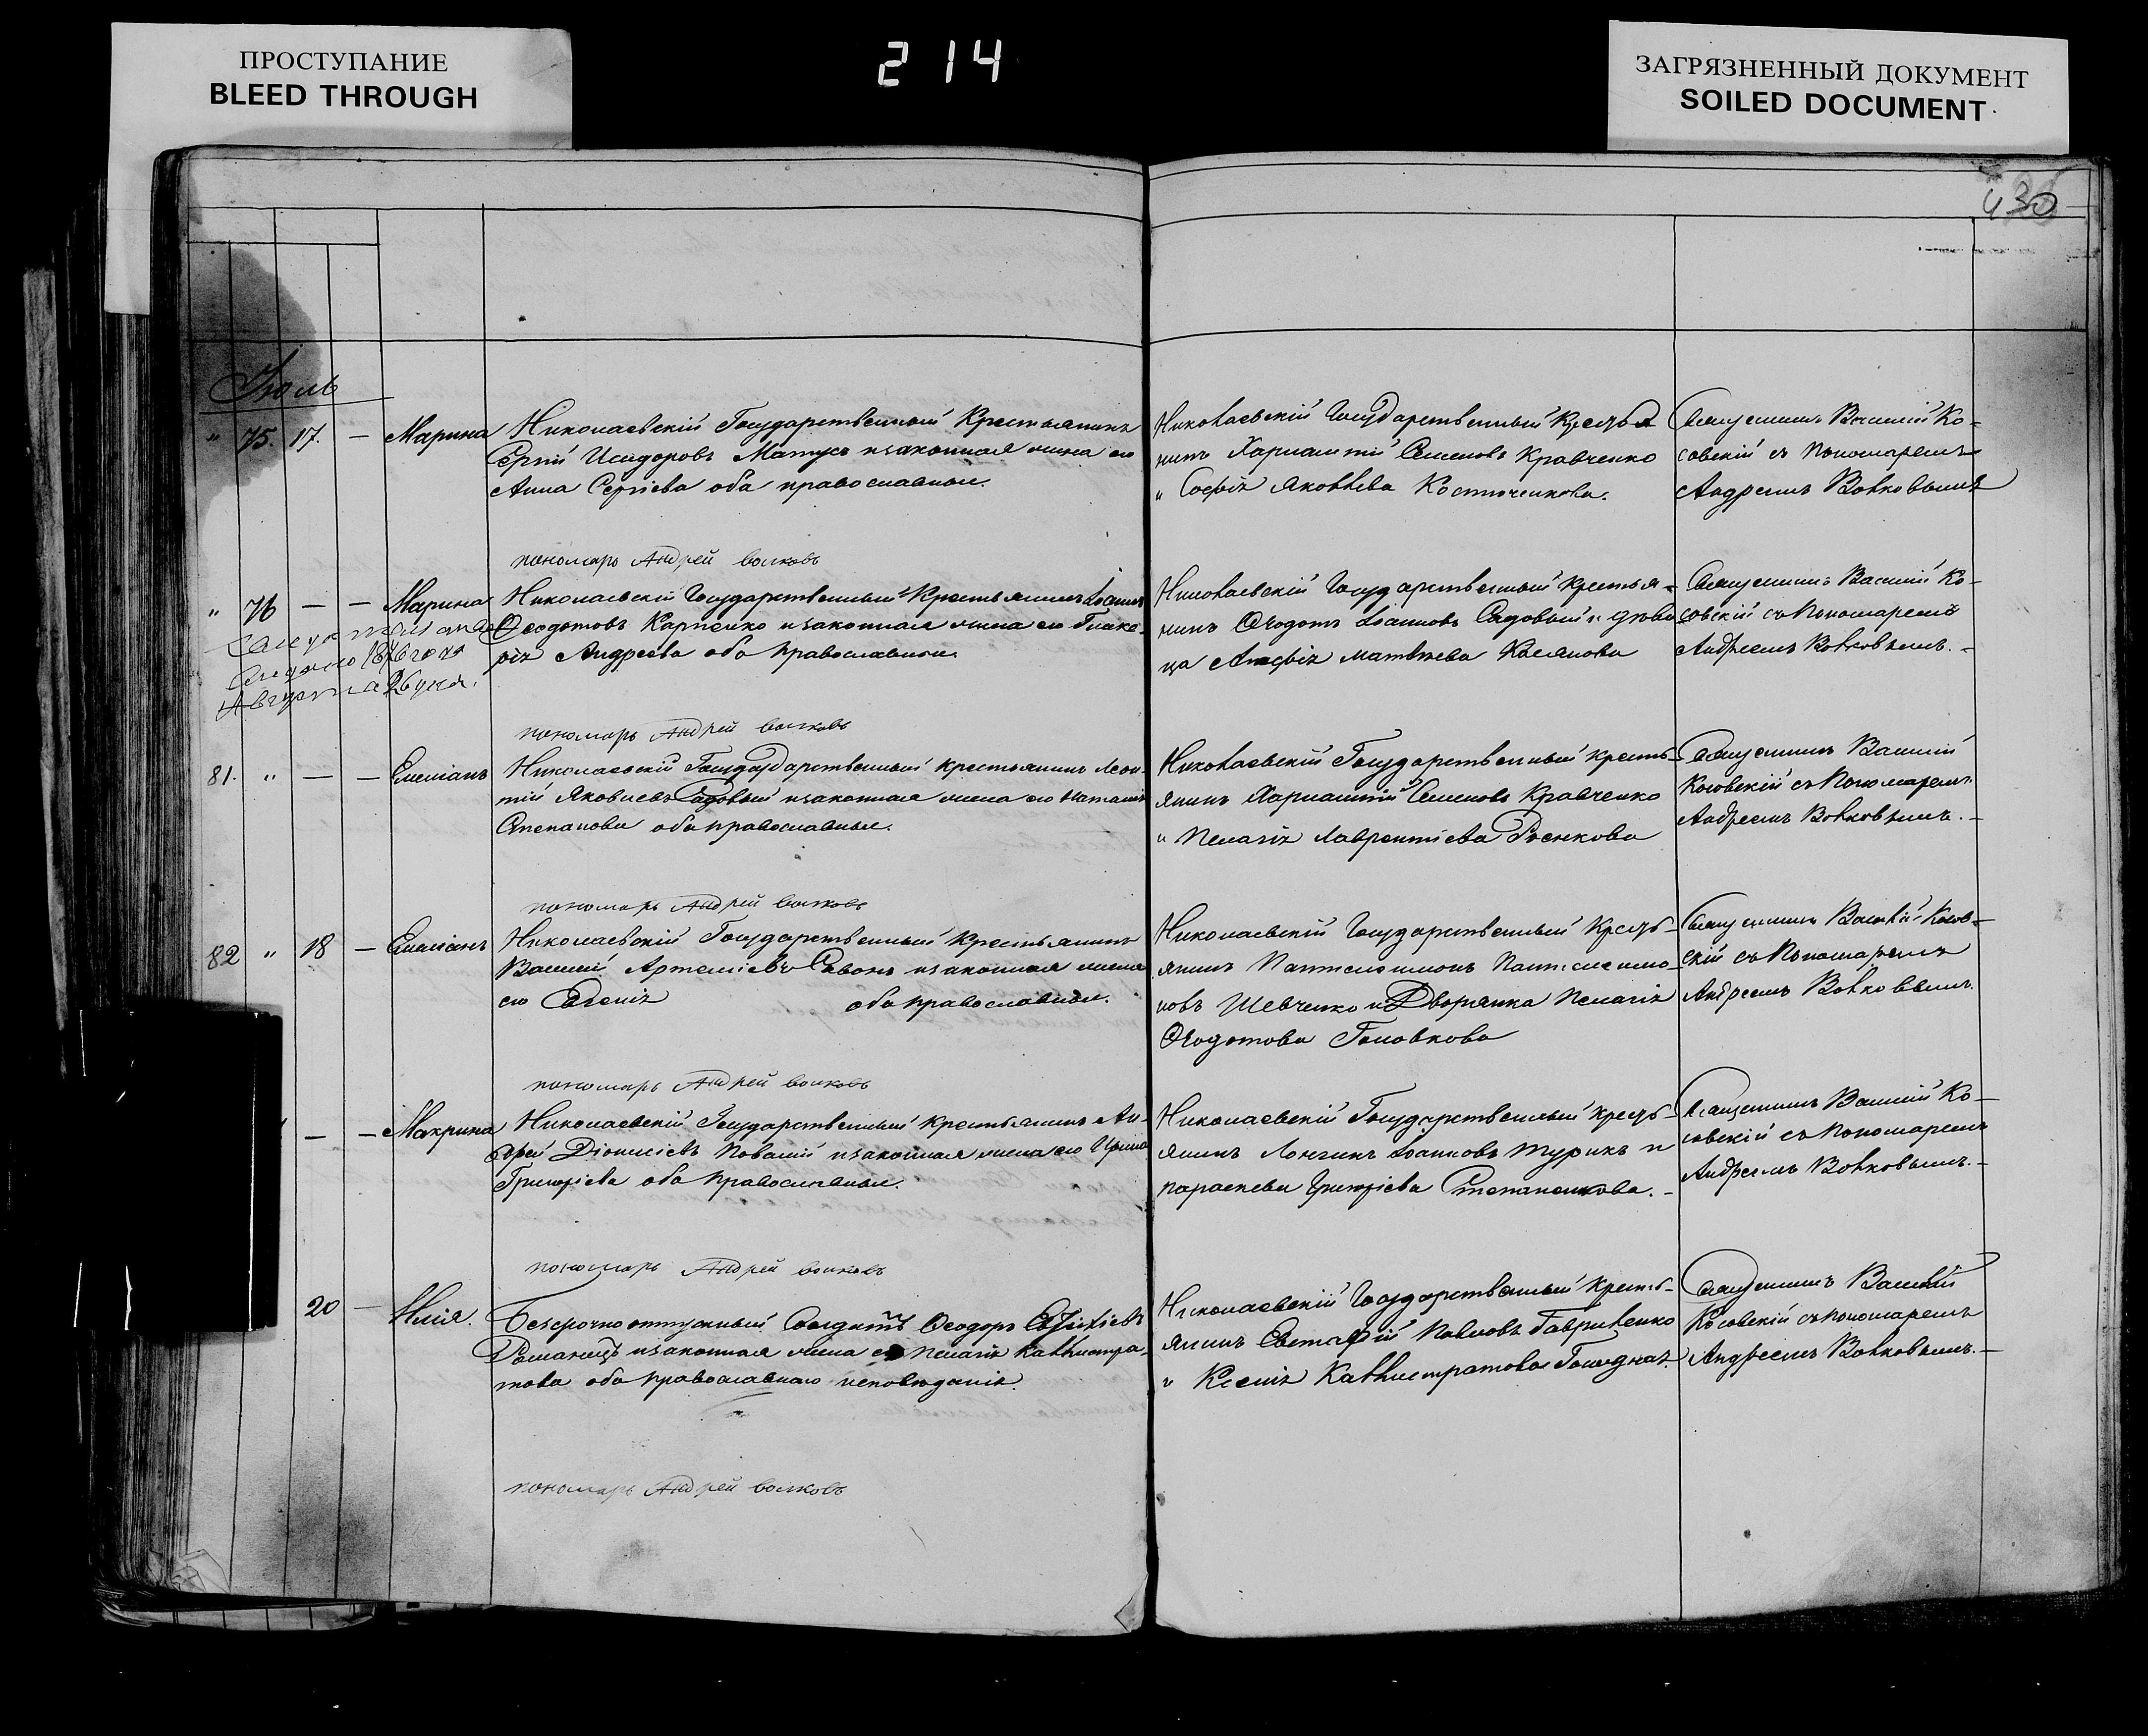 ПРОСТУПАНИЕ
BLEED THROUGH
214
ЗАГРЯЗНЕННЫЙ ДОКУМЕНТ
SOILED DOCUMENT
430
Іюль
" 75. 17. — Марина Николаевскій Государственный Крестьянинъ
Сергій Исидоровъ Матусъ и законная жена его
Анна Сергіева оба православные.
Николаевскій Государственный Крестья
нинъ Харлампій Семеновъ Кравченко
и Софія Яковлева Костюченкова.
Священникъ Василій Ко-
совскій съ Пономаремъ
Андреемъ Волковымъ
пономарь Андрей волковъ
" 76 — — Марина Николаевскій Государственный Крестьянинъ Іоаннъ
Ѳеодотовъ Карпенко и законная жена его Глике-
рія Андреева оба православные.
1876 года
Августа 26 дня.
Николаевскій Государственный крестья-
нинъ Ѳеодотъ Іоанновъ Садовый и дѣви
ца Матвѣева Касянова
Священникъ Василій Ко-
совскій съ Пономаремъ
Андреемъ Волковымъ. -
пономарь Андрей волковъ
81. " — — Емеліанъ Николаевскій Государственный крестьянинъ Леон-
тій Яковлевъ Садовый и законная жена его Наталія
Степанова оба православные.
Николаевскій Государственный кресть-
янинъ Харлампій Семеновъ Кравченко
и Пелагія Лаврентіева
Священникъ Василій
Косовскій съ Пономаремъ
Андреемъ Волковымъ. -
пономарь Андрей волковъ
82 " 18 — Емеліанъ Николаевскій Государственный Крестьянинъ
Василій Артеміевъ Савонъ и законная жена
его Евгенія оба православные.
Николаевскій Государственный Кресть-
янинъ Пантелеимонъ Пантелеимо-
новъ Шевченко и Дворянка Пелагія
Ѳеодотова Головкова
Священникъ Василій Косов-
скій съ Пономаремъ
Андреемъ Волковымъ.
пономарь Андрей волковъ
— — Макрина Николаевскій Государственный крестьянинъ Ан-
дрей Діонисіевъ и законная жена его Ирина
Григоріева оба православные.
Николаевскій Государственный кресть-
янинъ Лонгинъ Іоанновъ Турикъ и
параскева Григоріева Степаненкова. -
Священникъ Василій Ко-
совскій съ Пономаремъ
Андреемъ Волковымъ. -
пономарь Андрей волковъ
20 — Илія. Безсрочноотпускный Солдатъ Ѳеодоръ
Романецъ и законная жена его Пелагія Каллистра-
това оба православнаго исповѣданія.
Николаевскій Государственный кресть-
янинъ Евстафій Павловъ Гавриленко
и Ксенія Каллистратова
Священникъ Василій
Косовскій съ Пономаремъ
Андреемъ Волковымъ. -
пономарь Андрей волковъ